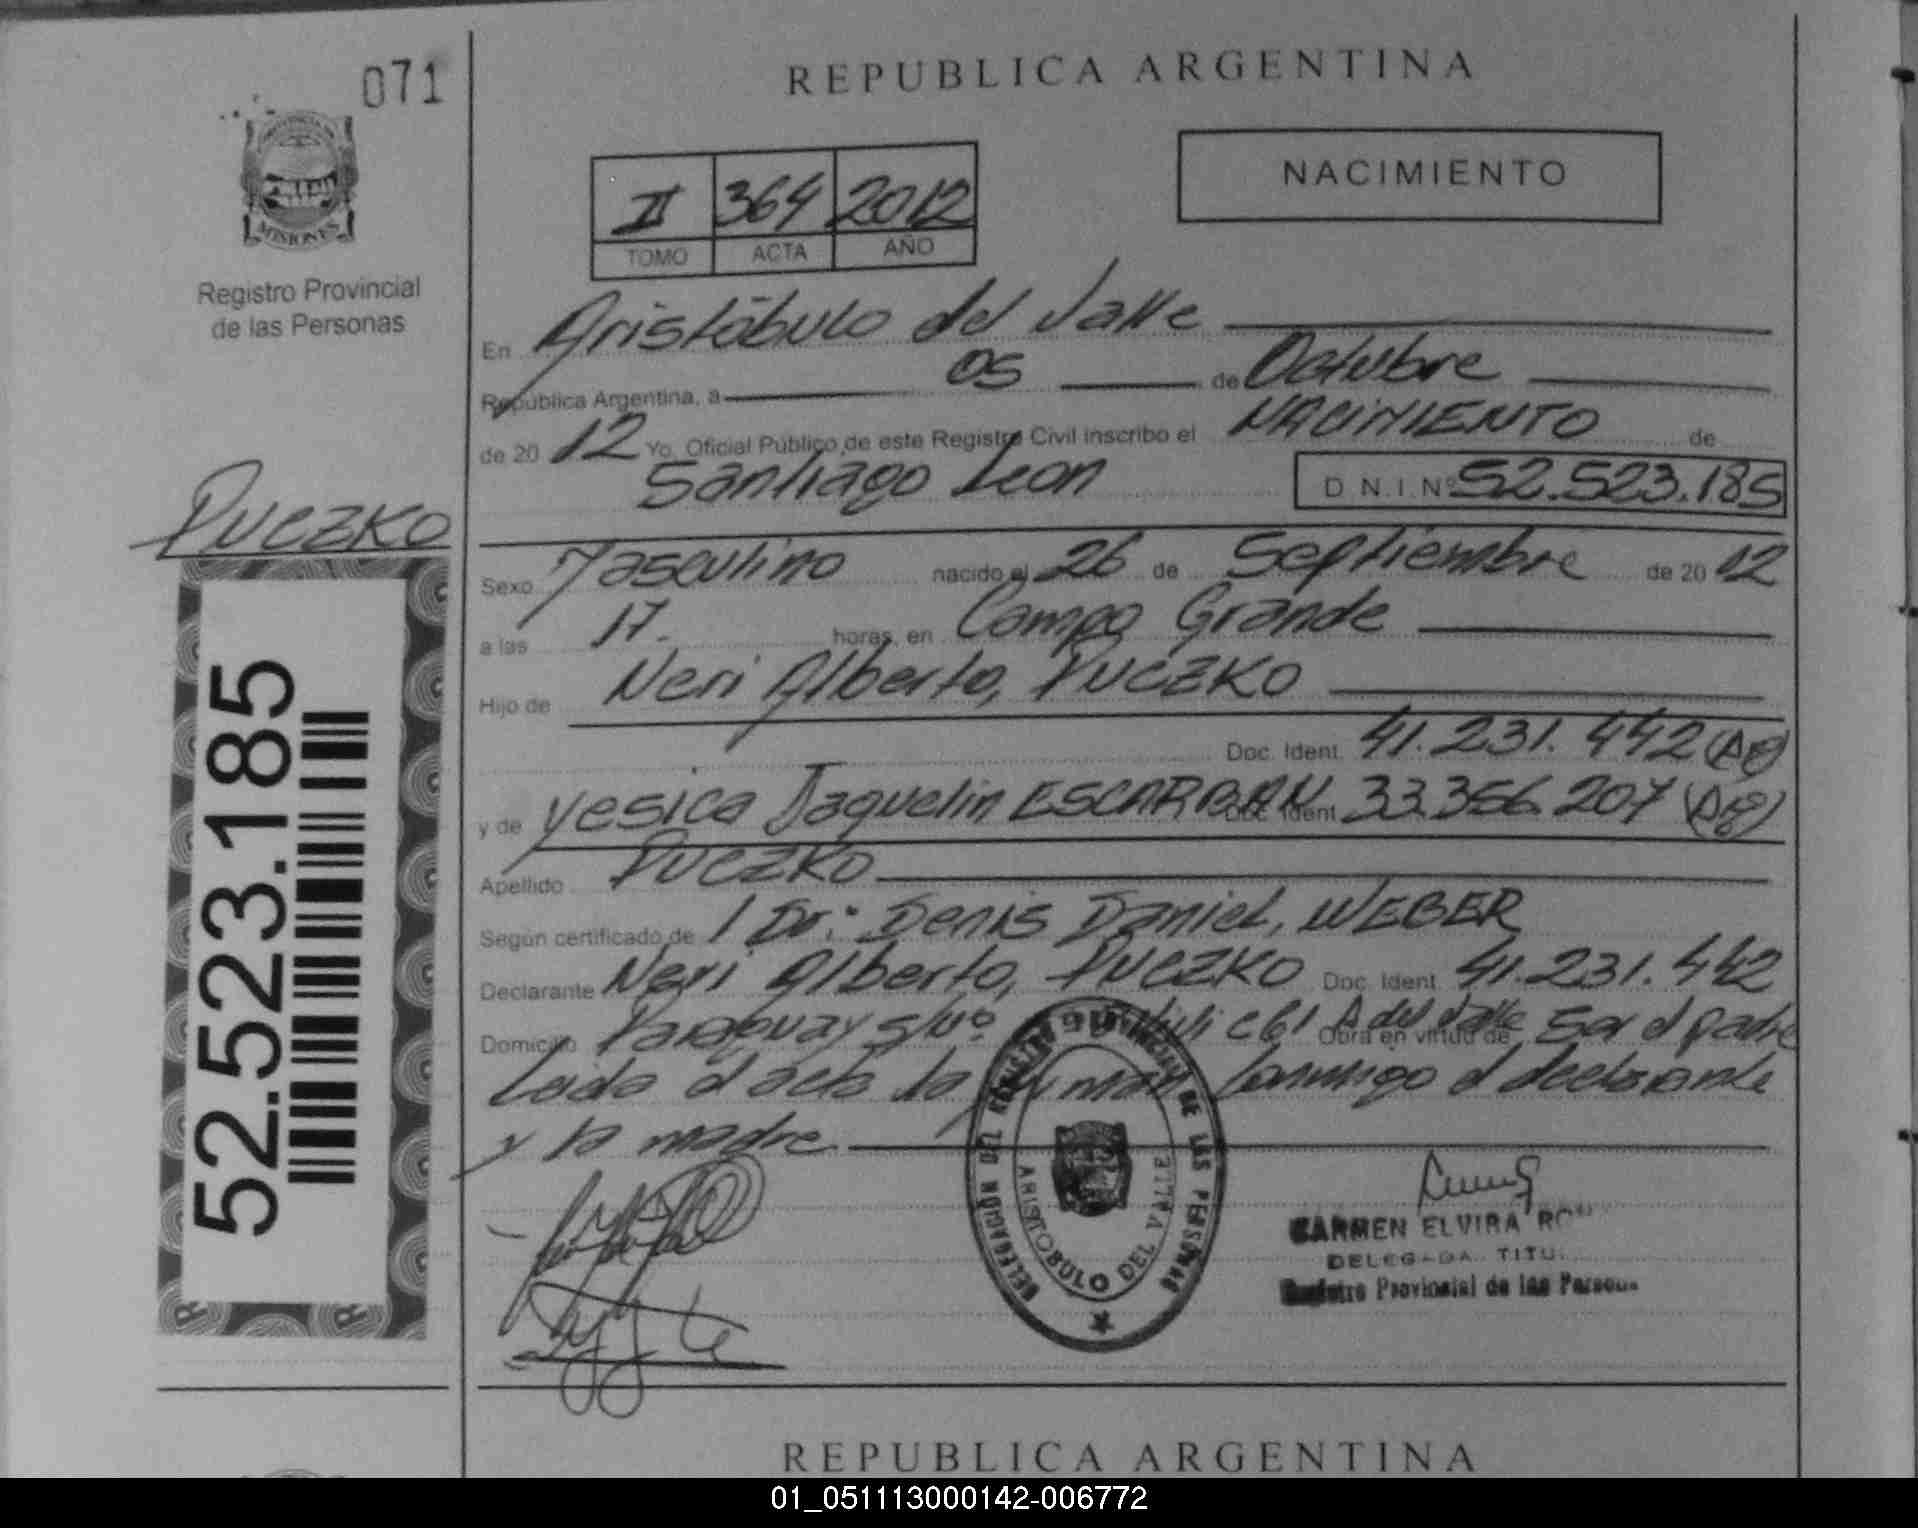 071
REPUBLICA ARGENTINA
NACIMIENTO
II 364 2012
TOMO ACTA AÑO
MISIONES
Registro Provincial
de las Personas
En Aristóbulo del Valle
República Argentina, a 05 de Octubre
de 20 12 Yo, Oficial Público de este Registro Civil inscribo el NACIMIENTO de
Santiago Leon D.N.I. Nº 52.523.185
PUCZKO
Sexo Masculino nacido el 26 de Septiembre de 20 12
a las 17. horas, en Campo Grande
Hijo de Neri Alberto, PUCZKO
Doc. Ident. 41.231.442
y de Yesica Jaquelin ESCARBAN Doc. Ident. 33.356.207
Apellido PUCZKO
Según certificado de Dr: Denis Daniel, WEBER
Declarante Neri Alberto, PUCZKO Doc. Ident. 41.231.442
Domicilio Paraguay s/nº A del Valle Obra en virtud de Ser el padre
Leida el acta la firman conmigo el declarante
y la madre
52.523.185
DELEGACION DEL REGISTRO PROVINCIAL DE LAS PERSONAS
ARISTOBULO DEL VALLE
CARMEN ELVIRA
DELEGADA
Registro Provincial de las Personas
REPUBLICA ARGENTINA
01_051113000142-006772